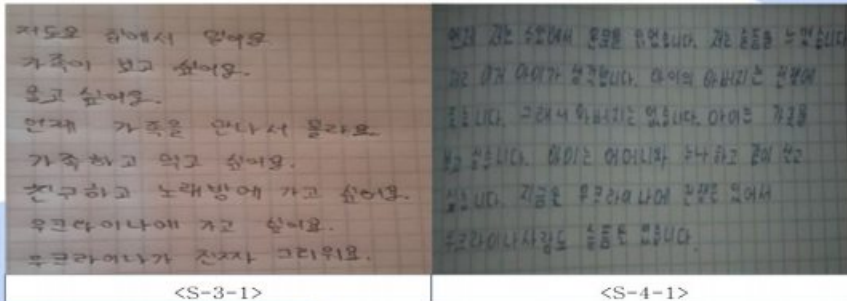 저도요 집에서 없어요
가족이 보고 싶어요.
울고 싶어요.
언제 가족을 만나서 몰라요.
가족하고 먹고 싶어요.
친구하고 노래방에 가고 싶어요.
우크라이나에 가고 싶어요.
우크라이나가 진짜 그리워요.
<S-3-1>
저는 수업에서 있었습니다. 저는 슬픔을
저는 이거 아이가 생각합니다. 아이의 아버지는 전쟁에
그래서 아버지는 없습니다. 아이는 가족을
보고 싶습니다. 아이는 어머니와 누나하고 같이 살고
싶습니다. 지금은 우크라이나에 전쟁은 있어서
우크라이나사람도 슬픔은 있습니다.
<S-4-1>